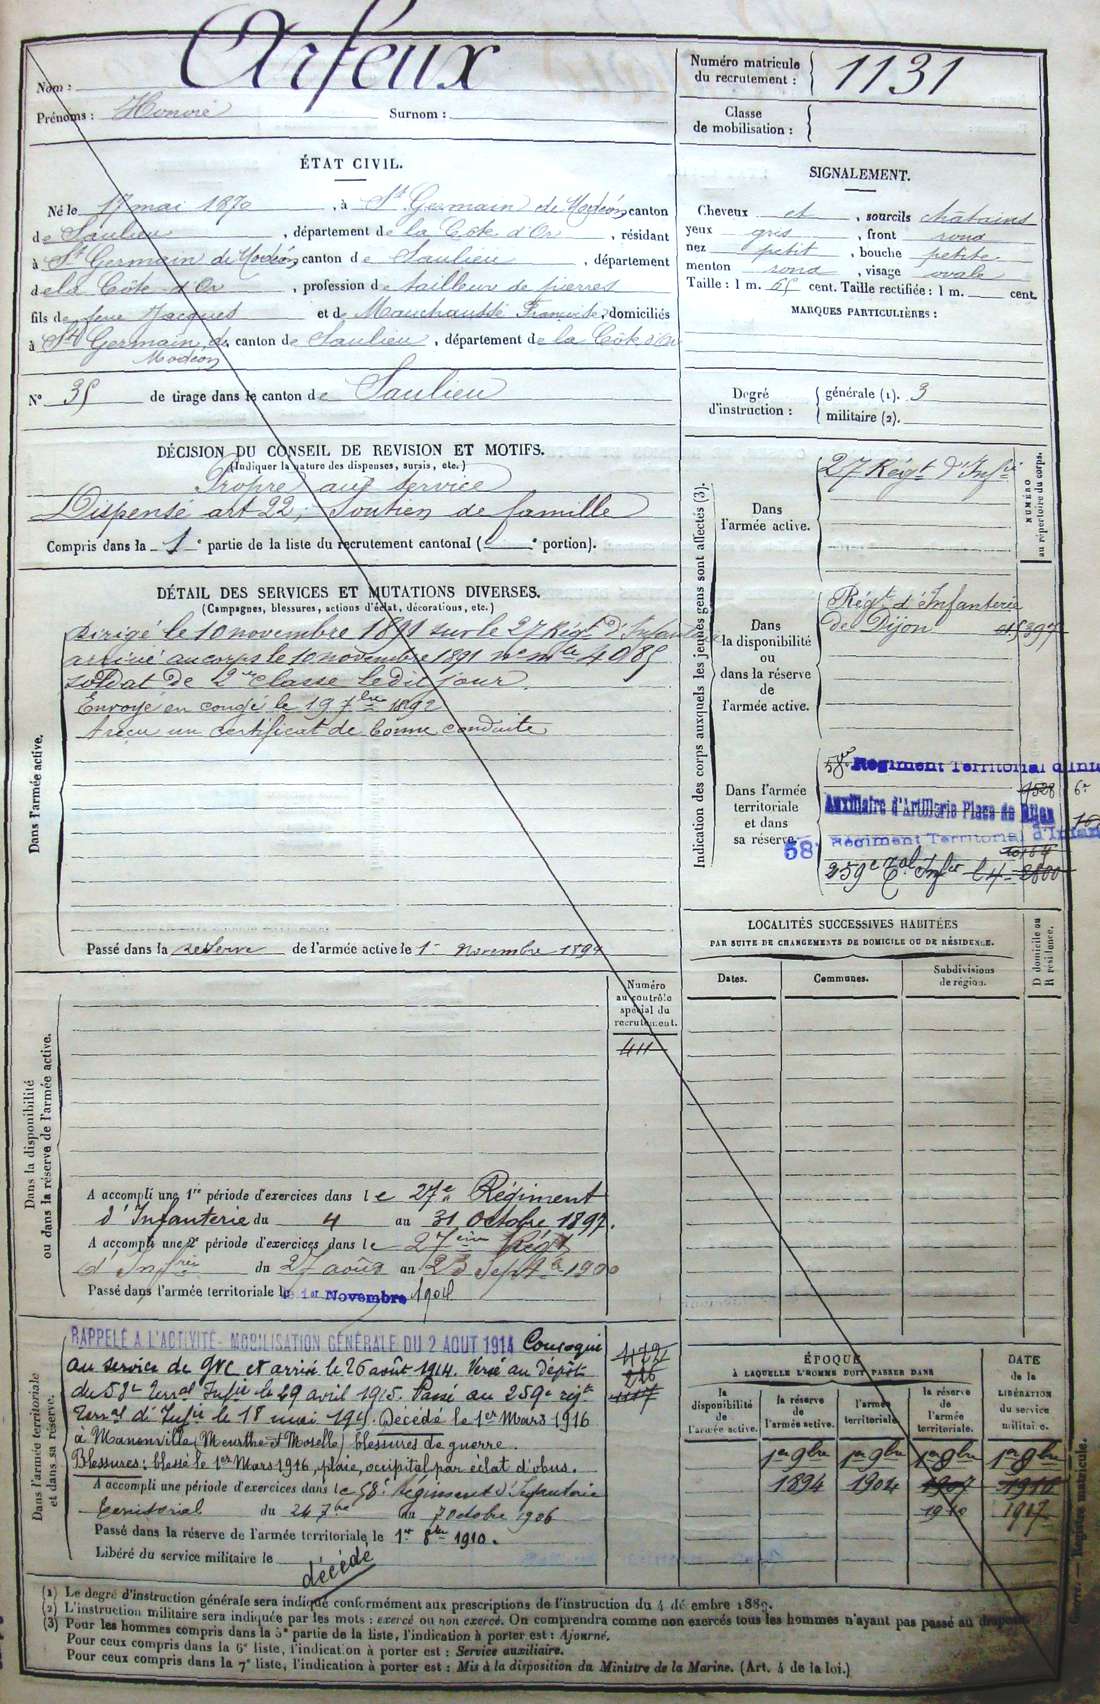 Nom : Arfeux
Prénoms : Honoré Surnom :
Numéro matricule du recrutement : 1131
Classe de mobilisation :
ÉTAT CIVIL.
Né le 17 mai 1870, à St Germain de Modéon, canton
de Saulieu, département de la Côte d'Or, résidant
à St Germain de Modéon, canton de Saulieu, département
de la Côte d'Or, profession de tailleur de pierres
fils de feu Jacques et de Mauchaussé Françoise, domiciliés
à St Germain de Modéon, canton de Saulieu, département de la Côte d'Or
N° 35 de tirage dans le canton de Saulieu
SIGNALEMENT.
Cheveux et, sourcils châtains
yeux gris, front rond
nez petit, bouche petite
menton rond, visage ovale
Taille : 1 m. 65 cent. Taille rectifiée : 1 m. cent.
MARQUES PARTICULIÈRES :
Degré d'instruction :
générale (1). 3
militaire (2).
DÉCISION DU CONSEIL DE REVISION ET MOTIFS.
(Indiquer la nature des dispenses, sursis, etc.)
Propre au service
Dispensé art 22, Soutien de famille
Compris dans la 1e partie de la liste du recrutement cantonal ( e portion).
DÉTAIL DES SERVICES ET MUTATIONS DIVERSES.
(Campagnes, blessures, actions d'éclat, décorations, etc.)
Dans l'armée active.
Dirigé le 10 novembre 1891 sur le 27 Régt d'Infanterie
arrivé au corps le 10 novembre 1891 no mle 4085
soldat de 2e classe ledit jour.
Envoyé en congé le 19 7bre 1892
A reçu un certificat de bonne conduite
Passé dans la réserve de l'armée active le 1er novembre 1894
Indication des corps auxquels les jeunes gens sont affectés (3).
NUMÉRO au répertoire du corps.
Dans l'armée active.
27 Régt d'Infie
Dans la disponibilité ou dans la réserve de l'armée active.
Régt d'Infanterie
de Dijon
Dans l'armée territoriale et dans sa réserve.
58e Régiment Territorial d'Inf
Auxiliaire d'Artillerie Place de Dijon
58 Régiment Territorial d'Infan
259e Tal Infie
LOCALITÉS SUCCESSIVES HABITÉES
PAR SUITE DE CHANGEMENTS DE DOMICILE OU DE RÉSIDENCE.
D domicile ou R résidence.
Dates. Communes. Subdivisions de région.
Dans la disponibilité ou dans la réserve de l'armée active.
Numéro au contrôle spécial du recrutement.
411
A accompli une 1re période d'exercices dans le 27e Régiment
d'Infanterie du 4 au 31 Octobre 1897.
A accompli une 2e période d'exercices dans le 27ème Régt
d'Infrie du 27 août au 23 Septbre 1900
Passé dans l'armée territoriale le 1er Novembre 1904
Dans l'armée territoriale et dans sa réserve.
RAPPELÉ A L'ACTIVITÉ - MOBILISATION GÉNÉRALE DU 2 AOUT 1914 Convoqué
au service de GVC et arrivé le 26 août 1914. Versé au dépôt
du 58e Terral Infie le 29 avril 1915. Passé au 259e régt
Terral d'Infie le 18 mai 1915. Décédé le 1er Mars 1916
à Manonviller (Meurthe et Moselle) blessures de guerre.
Blessures : blessé le 1er Mars 1916, plaie occipital par éclat d'obus.
A accompli une période d'exercices dans le 58e Régiment d'Infanterie
Territorial du 24 7bre au 7 octobre 1906
Passé dans la réserve de l'armée territoriale le 1er 8bre 1910.
Libéré du service militaire le décédé
ÉPOQUE
À LAQUELLE L'HOMME DOIT PASSER DANS
DATE de la LIBÉRATION du service militaire.
la disponibilité de l'armée active. la réserve de l'armée active. l'armée territoriale. la réserve de l'armée territoriale.
1er 9bre 1er 9bre 1er 9bre 1er 9bre
1894 1904 1907 1916
1910 1917
(1) Le degré d'instruction générale sera indiqué conformément aux prescriptions de l'instruction du 4 décembre 1889.
(2) L'instruction militaire sera indiquée par les mots : exercé ou non exercé. On comprendra comme non exercés tous les hommes n'ayant pas passé au drapeau.
(3) Pour les hommes compris dans la 5e partie de la liste, l'indication à porter est : Ajourné.
Pour ceux compris dans la 6e liste, l'indication à porter est : Service auxiliaire.
Pour ceux compris dans la 7e liste, l'indication à porter est : Mis à la disposition du Ministre de la Marine. (Art. 4 de la loi.)
Registre matricule.